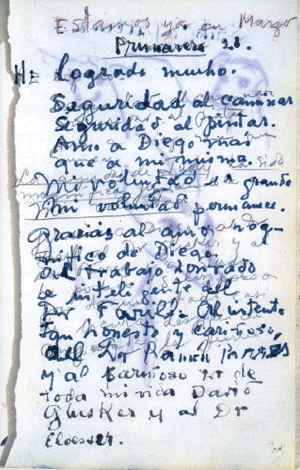 Estamos ya en Marzo
Primavera 21.
He logrado mucho.
Seguridad al caminar
Seguridad al pintar.
Amo a Diego mas
que a mi misma.
Mi voluntad es grande
Mi voluntad permanece.
Gracias al amor mag-
nifico de Diego.
Del trabajo honrado
e inteligente del
Dr Farill. Al intento
tan honesto y cariñoso
del Dr Ramón Parres
y al cariñoso de
toda mi vida David
Glusker y al Dr
Eloesser.